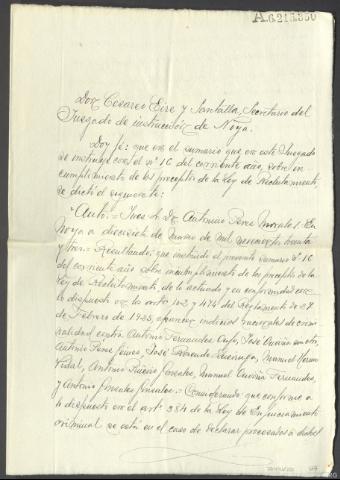 A.6215.350
Don Cesareo Eire y Santalla, Secretario del
Juzgado de instrucción de Noya.
Doy fé: que en el sumario que en este Juzgado
se instruye con el nº 16 del corriente año, sobre in-
cumplimiento de los preceptos de la Ley de Reclutamiento,
se dictó el siguiente:
"Auto.- Juez Sr. D. Antonio Perez Morales. En
Noya a dieciseis de Marzo de mil novecientos treinta
y tres. Resultando, que instruido el presente sumario nº 16
del corriente año sobre incumplimiento de los preceptos de la
Ley de Reclutamiento, de lo actuado y en conformidad con
lo dispuesto en los artos 102 y 474 del Reglamento de 27
de Febrero de 1925, aparecen indicios racionales de crimi-
nalidad contra Antonio Fernandez José
Antonio Perez Gomez, José Manuel
Vidal, Antonio Gonzalez, Manuel Fernandez,
y Antonio Gonzalez Gonzalez.- Considerando: que conforme a
lo dispuesto en el artº 384 de la Ley de Enjuiciamiento
criminal se está en el caso de declarar procesados a dichos